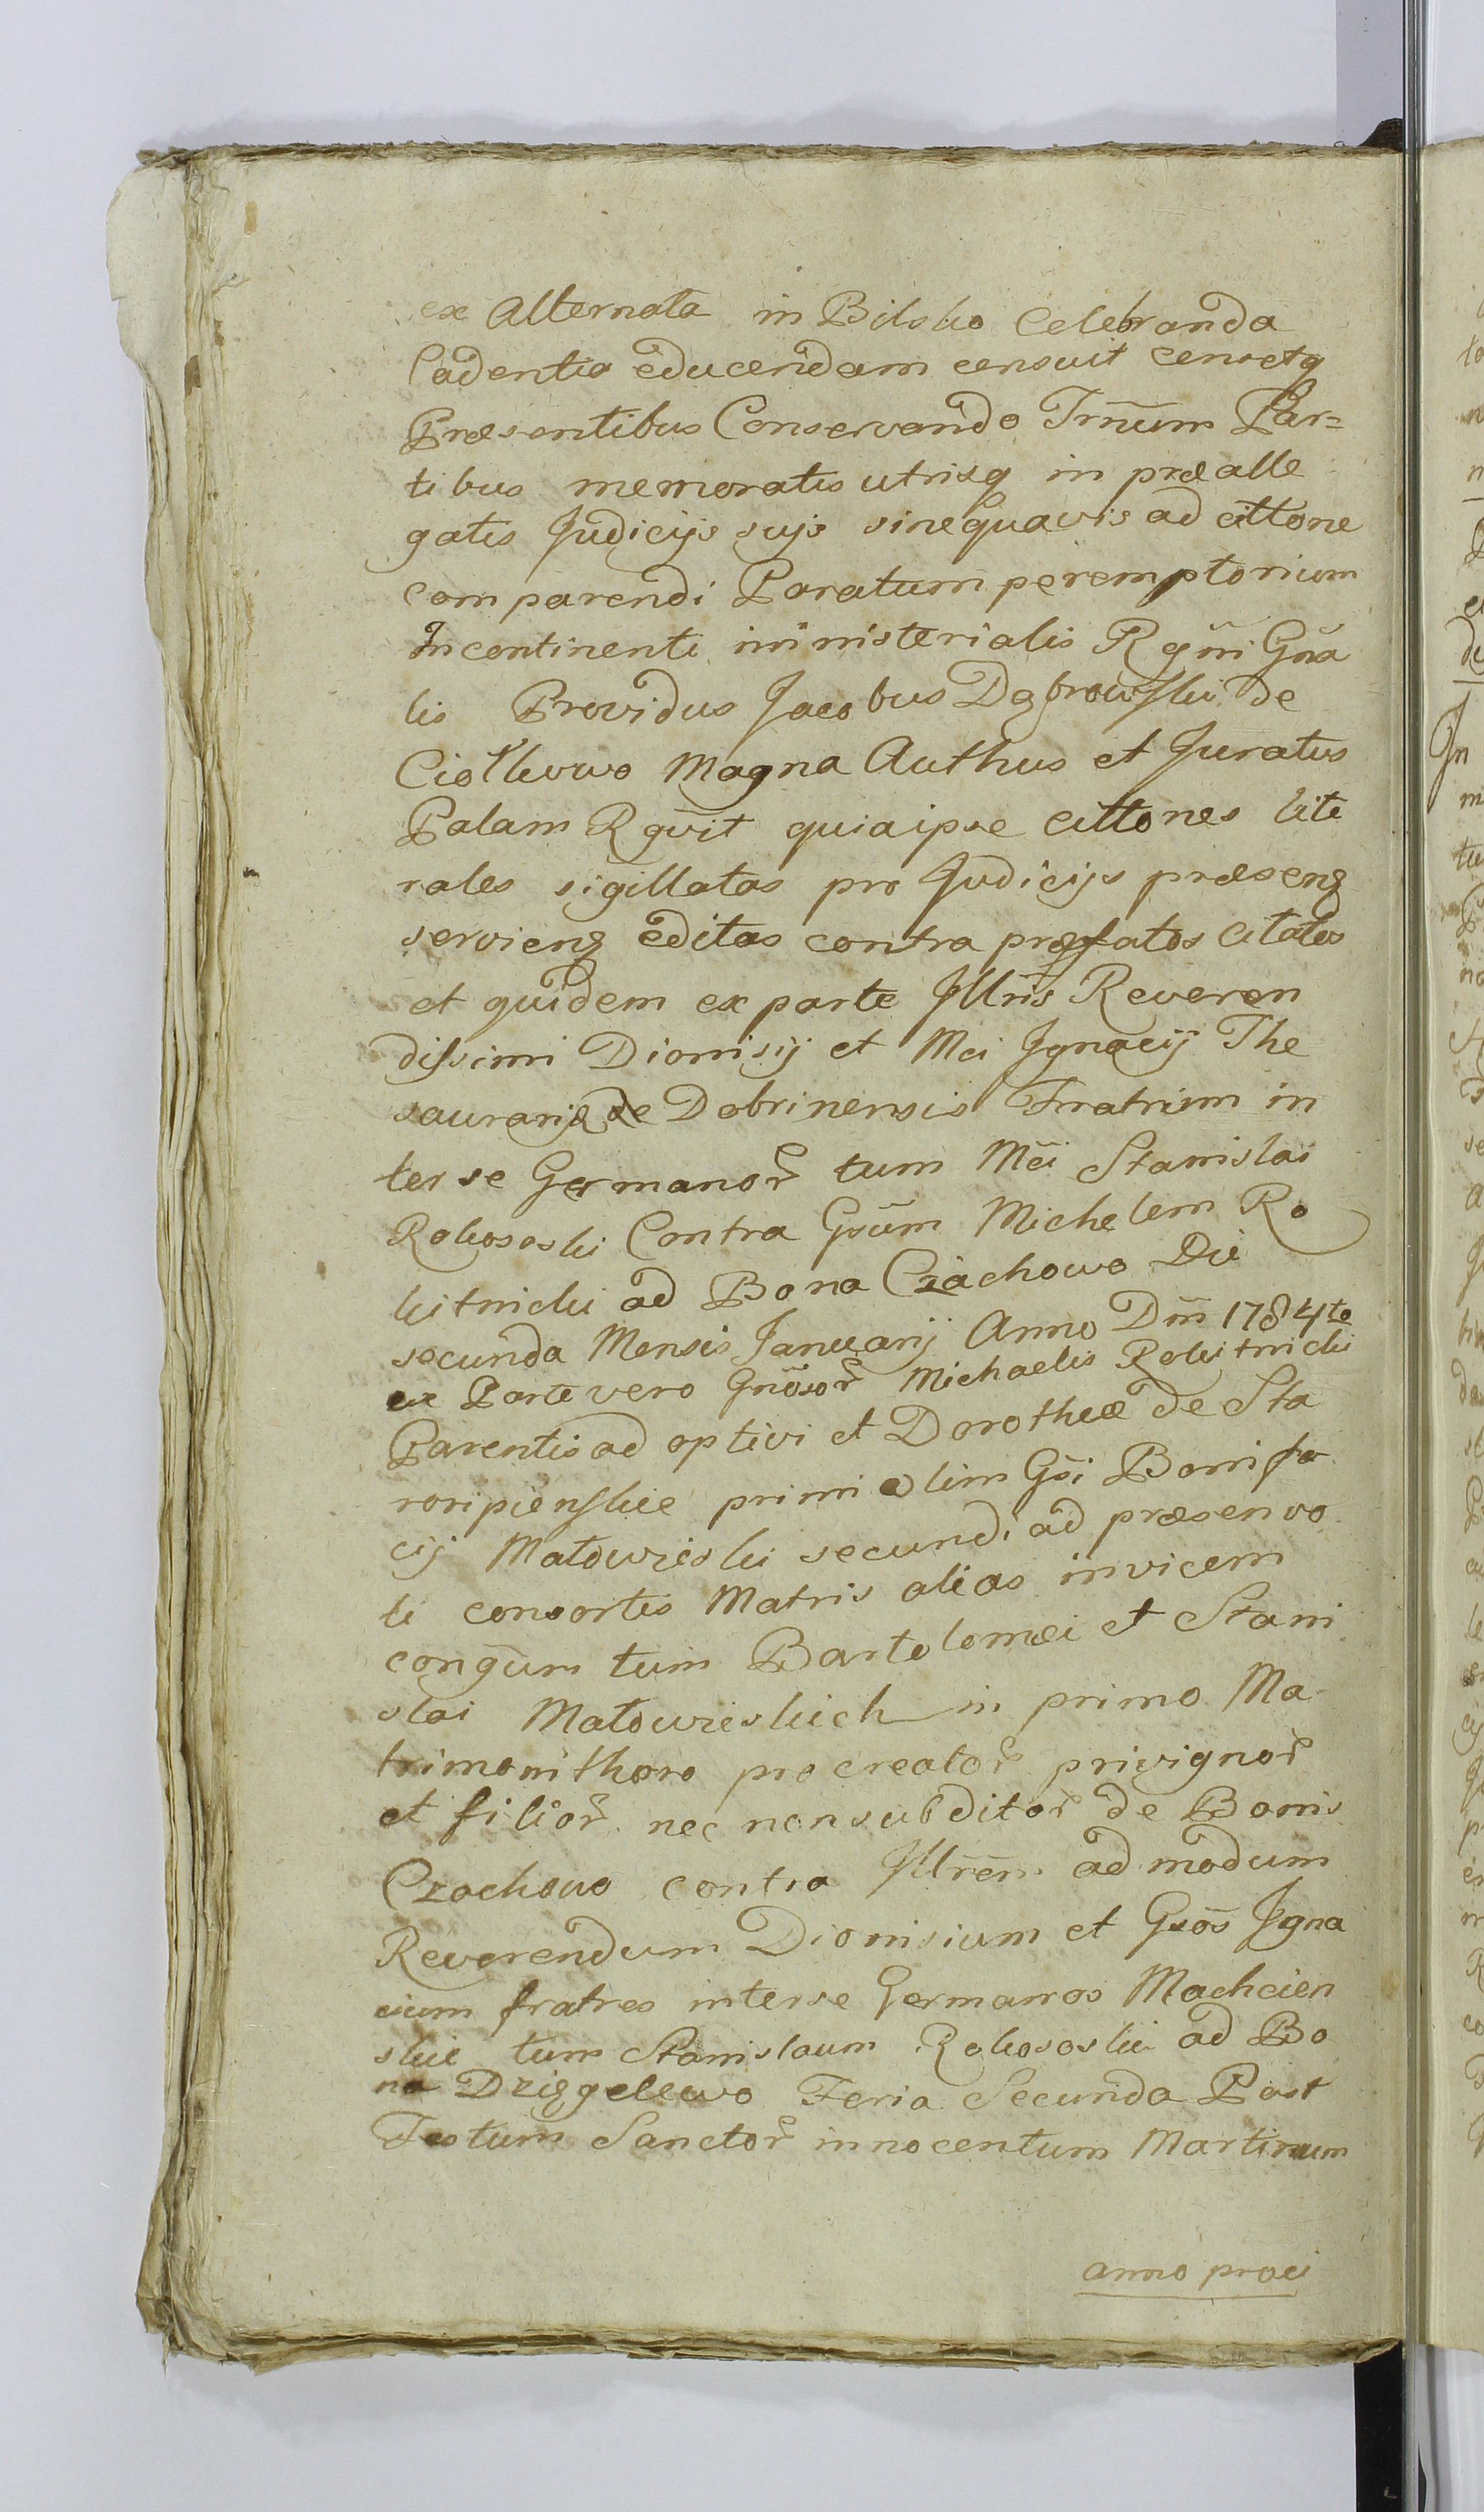 ex Alternata in Bilsko Celebranda
Cadentia educendam censuit censetq
Præsentibus Conservando Trnum Par=
tibus memoratis utrisq in præalle
gatis Judicijs sujs sinequavis ad cittone
comparendi Paratum peremptorium
Incontinenti ministerialis Rgni Gna
lis Providus Jacobus Dąbrowski de
Ciołkowo Magna Authus et Juratus
Palam Rgvit quia ipse cittones lite
rales sigillatas pro Judicijs præseng
servieng editas contra præfatos citatos
et quidem ex parte Jllris Reveren
dissimi Dionisij et Mci Jgnacij The
saurarij de Dobrinensis Frratrum in
ter se Germanor tum Mci Stanislai
Rokososki Contra Gsum Michelem Ro
kitnicki ad Bona Czachowo Die
secunda Mensis Januarij Anno Dni 1784to
ex Parte vero Gnosor Michaelis Rokitnicki
Parentis ad optivi et Dorotheæ de Sta
roripienskie primi olim Gsi Bonifa
cij Matowieski secundi ad præsen vo
ti consortis Matris alias invicem
congum tum Bartolomæi et Stani
slai Matowieskich in primo Ma
trimoni thoro procreator privignor
et filior nec non subditor de Bonis
Czachowo contra Jllrem ad modum
Reverendum Dionisium et Gsos Jgna
cium fratres inter se Germanos Machcien
skie tum Stanislaum Rokososki ad Bo
na Dzięgelewo Feria Secunda Post
Festum Sanctor innocentum Martinum
anno præci